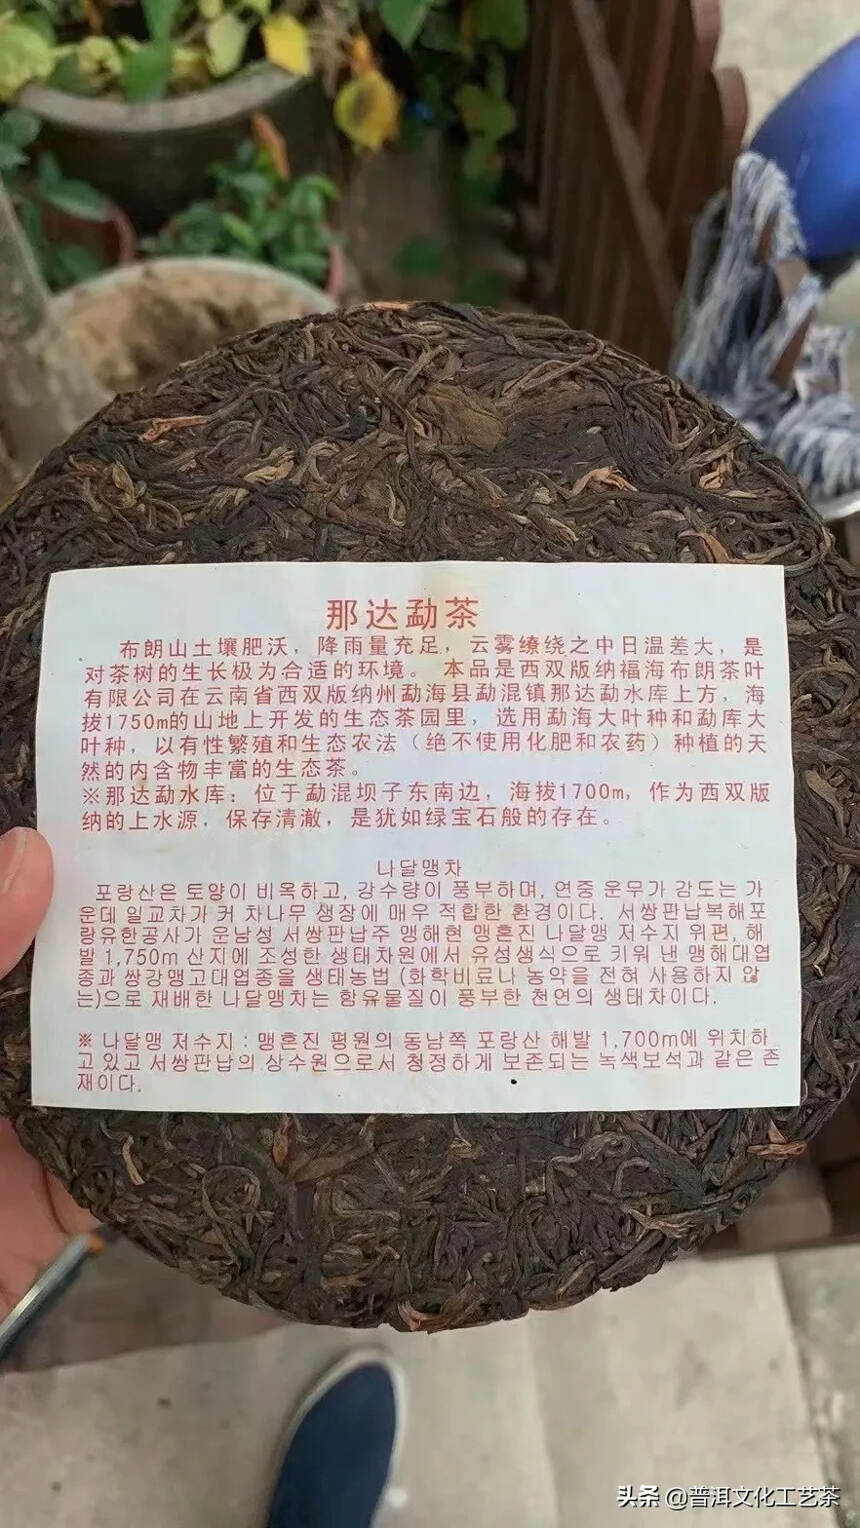 那达勐茶
布朗山土壤肥沃，降雨量充足，云雾缭绕之中日温差大，是
对茶树的生长极为合适的环境。本品是西双版纳福海布朗茶叶
有限公司在云南省西双版纳州勐海县勐混镇那达勐水库上方，海
拔1750m的山地上开发的生态茶园里，选用勐海大叶种和勐库大
叶种，以有性繁殖和生态农法（绝不使用化肥和农药）种植的天
然的内含物丰富的生态茶。
※那达勐水库：位于勐混坝子东南边，海拔1700m，作为西双版
纳的上水源，保存清澈，是犹如绿宝石般的存在。
나달맹차
포랑산은 토양이 비옥하고, 강수량이 풍부하며, 연중 운무가 감도는 가
운데 일교차가 커 차나무 생장에 매우 적합한 환경이다. 서쌍판납복해포
랑유한공사가 운남성 서쌍판납주 맹해현 맹혼진 나달맹 저수지 위편, 해
발 1,750m 산지에 조성한 생태차원에서 유성생식으로 키워 낸 맹해대엽
종과 쌍강맹고대엽종을 생태농법 (화학비료나 농약을 전혀 사용하지 않
는)으로 재배한 나달맹차는 함유물질이 풍부한 천연의 생태차이다.
※ 나달맹 저수지 : 맹혼진 평원의 동남쪽 포랑산 해발 1,700m에 위치하
고 있고 서쌍판납의 상수원으로서 청정하게 보존되는 녹색보석과 같은 존
재이다.
头条 @普洱文化工艺茶